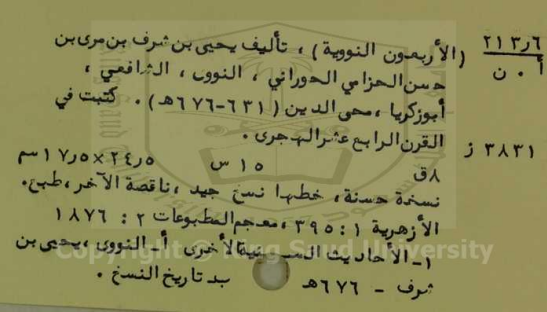 ٢١٣٫٦ (الأربعون النووية) ، تأليف يحيى بن شرف بن مرى بن
أ ٠ ن حسن الحزامي الحوراني ، النووى ، الشافعي ،
أبوزكريا ، محى الدين (٦٣١-٦٧٦هـ) . كتبت في
٣٨٣١ ز القرن الرابع عشر الهجرى .
٨ق ١٥ س ٢٤٫٥×١٧٫٥سم
نسخة حسنة ، خطها نسخ جيد ، ناقصة الآخر ، طبع .
الأزهرية ١ : ٣٩٥ ، معجم المطبوعات ٢ : ١٨٧٦
١- الأحاديث الأخرى أ- النووى ، يحيى بن
شرف - ٦٧٦هـ ب- تاريخ النسخ .
Copyright © King Saud University